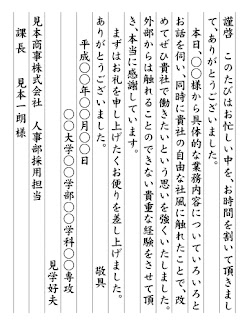 謹啓　このたびはお忙しい中を、お時間を割いて頂きまし
て、ありがとうございました。
　本日、〇〇様から具体的な業務内容についていろいろと
お話を伺い、同時に貴社の自由な社風に触れたことで、改
めてぜひ貴社で働きたいという思いを強くいたしました。
外部からは触れることのできない貴重な経験をさせて頂
き、本当に感謝しています。
　まずはお礼を申し上げたくお便りを差し上げました。
ありがとうございました。
敬具
平成〇〇年〇〇月〇〇日
〇〇大学〇〇学部〇〇学科〇〇専攻
見学好夫
見本商事株式会社　人事部採用担当
課長　見本一朗様